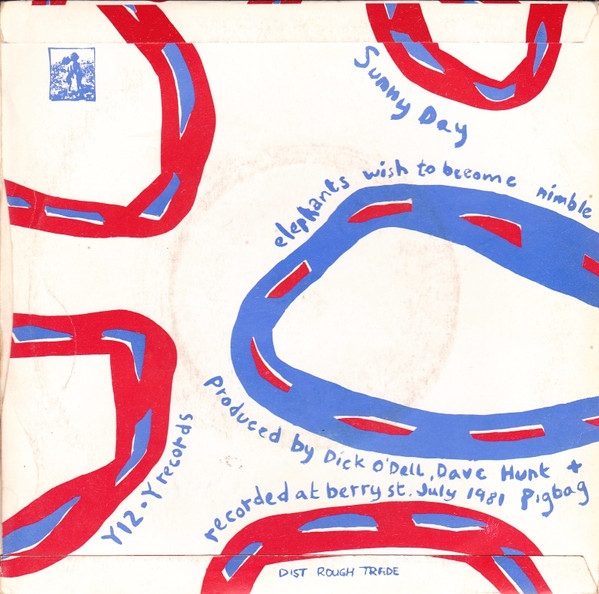 Sunny Day
elephants wish to become nimble
produced by Dick O'Dell, Dave Hunt +
recorded at berry st. July 1981 Pigbag
Y12 • Y records
DIST ROUGH TRADE